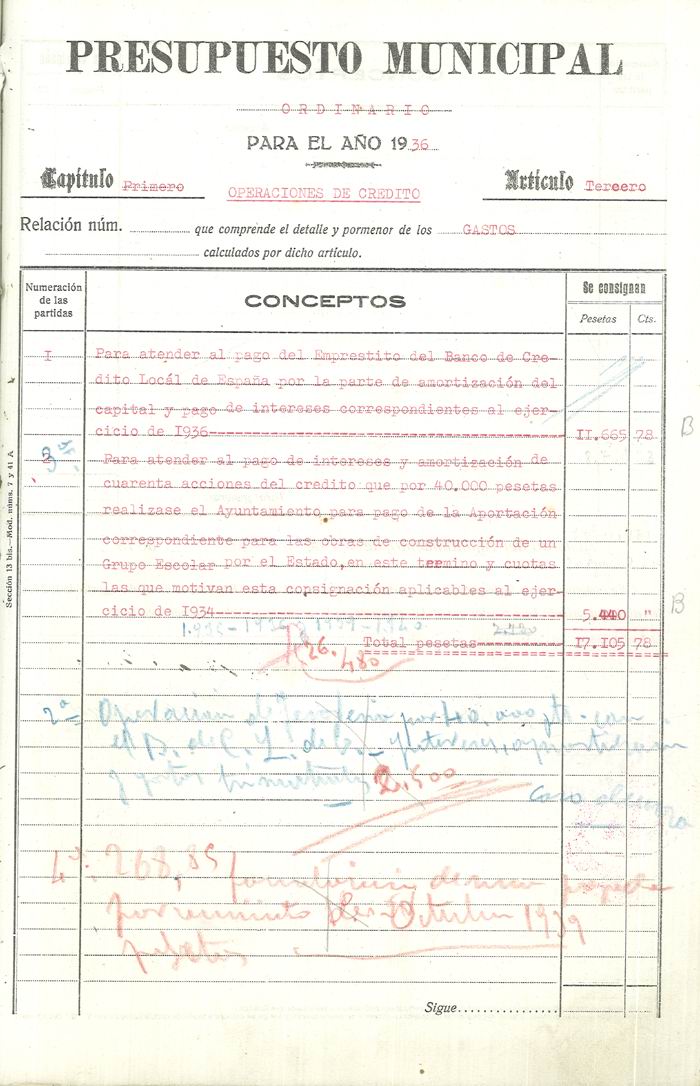 PRESUPUESTO MUNICIPAL
ORDINARIO
PARA EL AÑO 1936
Capítulo Primero
OPERACIONES DE CREDITO
Artículo Tercero
Relación núm. que comprende el detalle y pormenor de los GASTOS
calculados por dicho artículo.
Numeración de las partidas
CONCEPTOS
Se consignan
Pesetas Cts.
I Para atender al pago del Emprestito del Banco de Cre-
dito Locál de España por la parte de amortización del
capital y pago de intereses correspondientes al ejer-
cicio de I936 II.665 78 B
Para atender al pago de intereses y amortización de
cuarenta acciones del credito que por 40.000 pesetas
realizase el Ayuntamiento para pago de la Aportación
correspondiente para las obras de construcción de un
Grupo Escolar por el Estado, en este termino y cuotas
las que motivan esta consignación aplicables al ejer-
cicio de I934 5.440 " B
Total pesetas I7.I05 78
26.480
2ª Operacion de
2.500
4ª 268,85
Octubre 1939
pesetas
Sigue
Sección 13 bis.—Mod. núms. 7 y 41 A